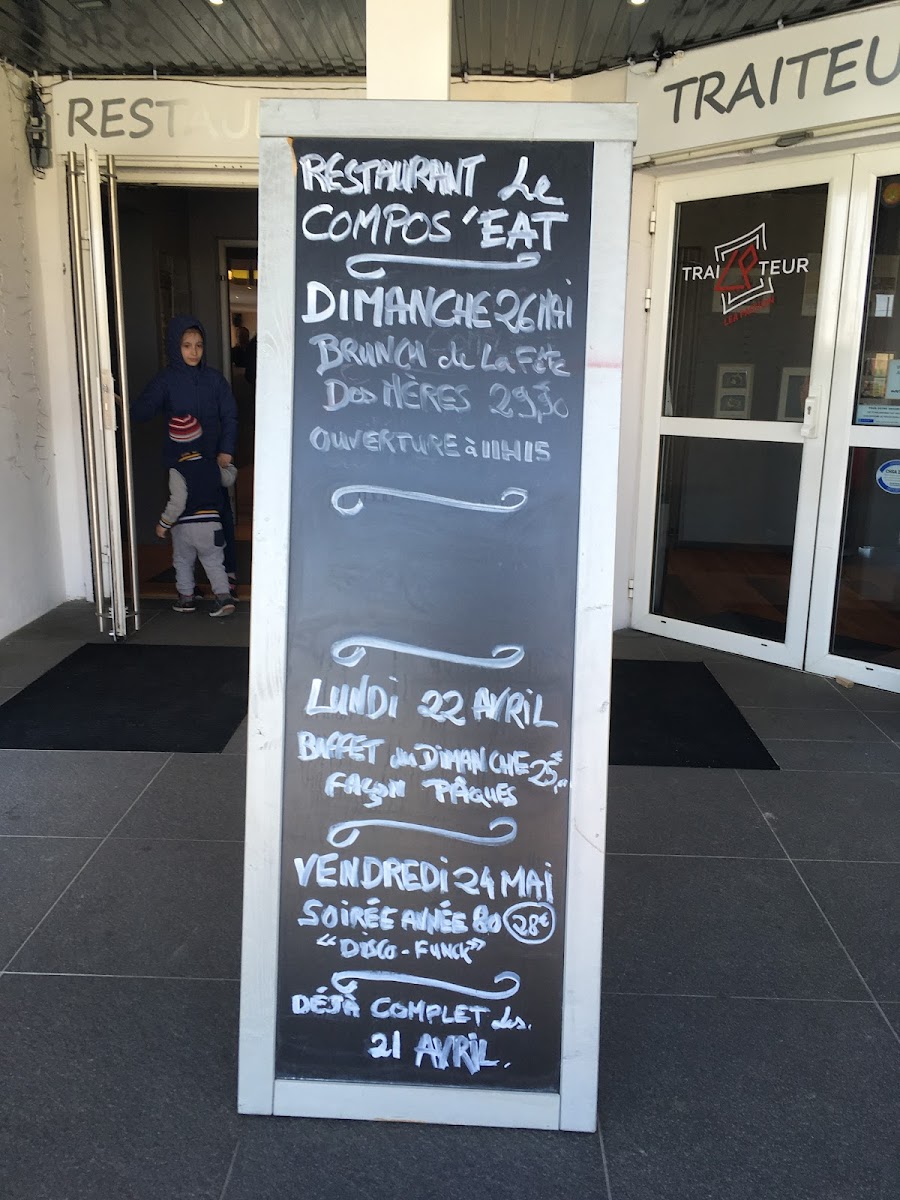 RESTAU
TRAITEU
RESTAURANT Le
COMPOS'EAT
DIMANCHE 26 MAI
BRUNCH de La Fête
Des MÈRES 29,50
OUVERTURE à 11H15
LUNDI 22 AVRIL
BUFFET du DIMANCHE 25€
FAÇON PÂQUES
VENDREDI 24 MAI
SOIRÉE ANNÉE 80 28€
"DISCO-FUNCK"
DÉJÀ COMPLET Les.
21 AVRIL.
TRAI TEUR